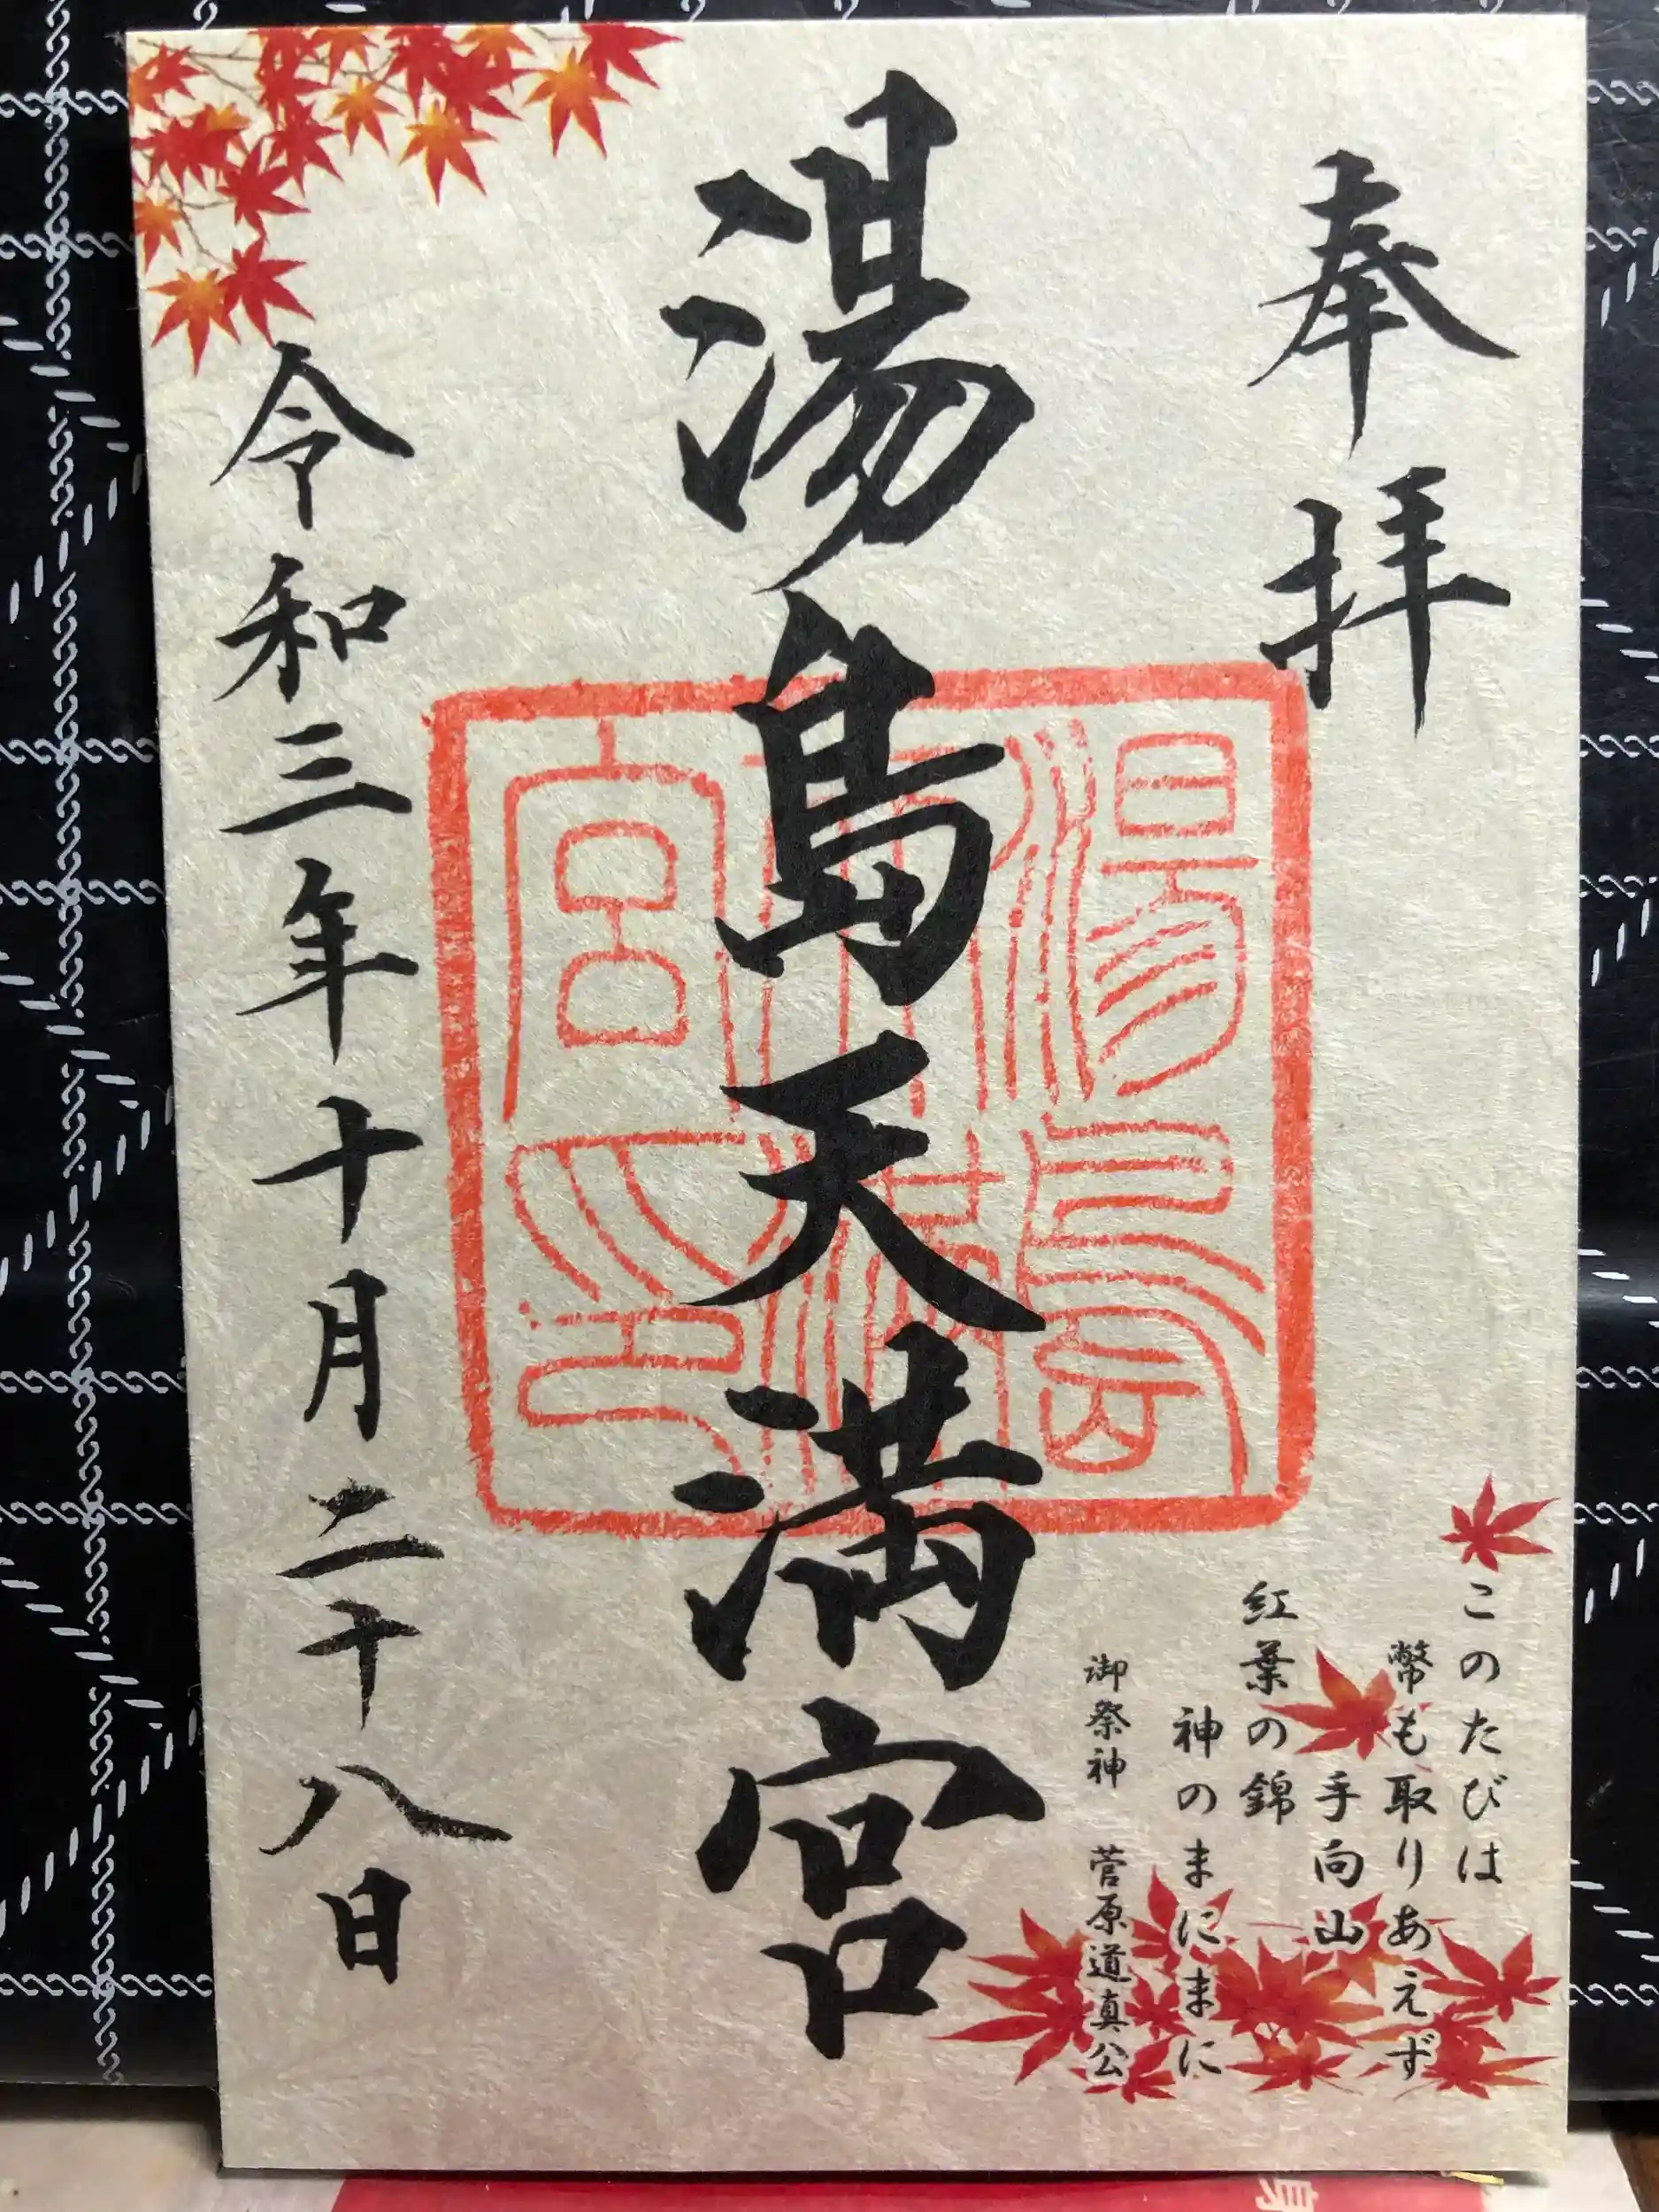 奉拝
このたびは
幣も取りあえず
手向山
紅葉の錦
神のまにまに
御祭神 菅原道真公
湯島天満宮
湯島
宮之印
令和三年十月二十八日